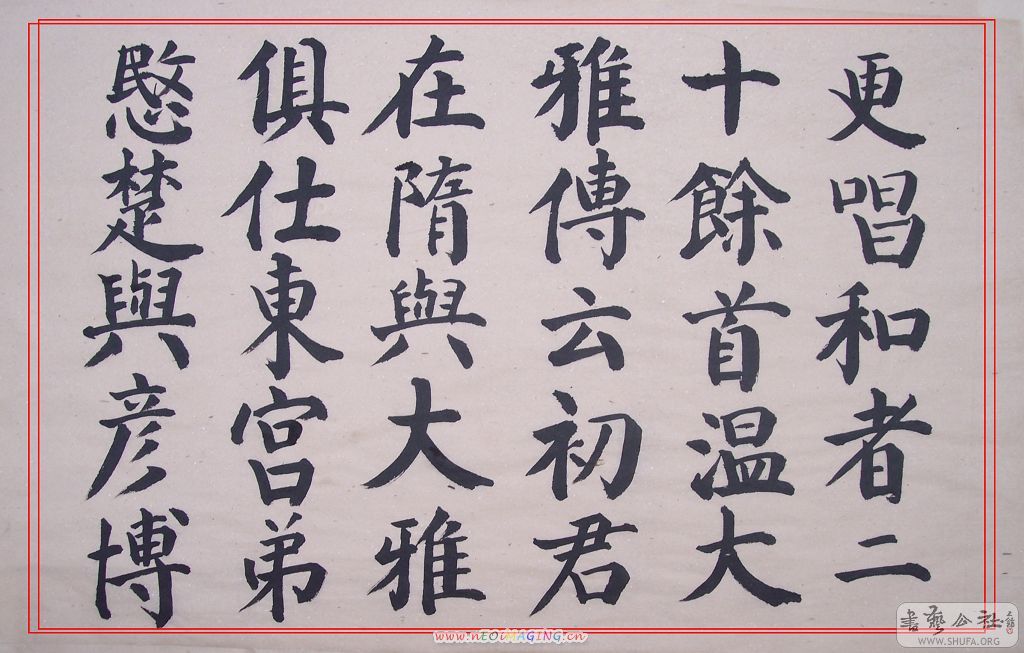 更唱和者二
十餘首温大
雅傳云初君
在隋與大雅
俱仕東宫弟
愍楚與彦博
書藝公社
WWW.SHUFA.ORG
www.nEOiMAGING.cn